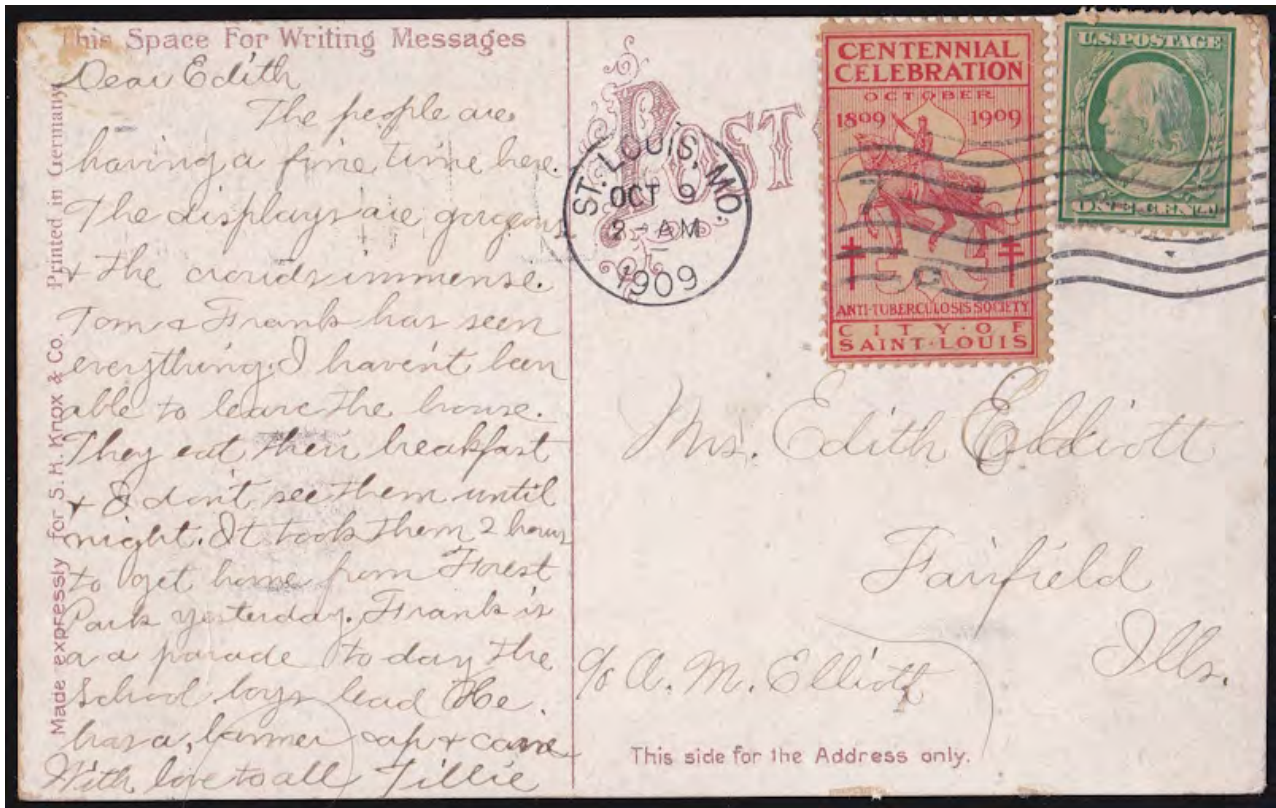 This Space For Writing Messages
Dear Edith
The people are
having a fine time here.
The displays are gorgeous
& the crouds immense.
Tom & Frank has seen
everything. I haven't been
able to leave the house.
They eat their breakfast
& I don't see them until
night. It took them 2 hours
to get home from Forest
Park yesterday. Frank is
a parade to day the
School boys lead He
has a, banner cap & cane
With love to all Tillie
Made expressly for S. H. Knox & Co. Printed in Germany.
POST
ST. LOUIS, MO.
OCT 9
2 - AM
1909
CENTENNIAL
CELEBRATION
OCTOBER
1809 1909
ANTI-TUBERCULOSIS SOCIETY
CITY·OF
SAINT·LOUIS
U.S. POSTAGE
ONE CENT
Mrs. Edith Elliott
Fairfield
Ills.
c/o A. M. Elliott
This side for the Address only.